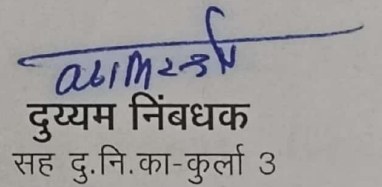 दुय्यम निंबधक
सह दु.नि.का-कुर्ला 3